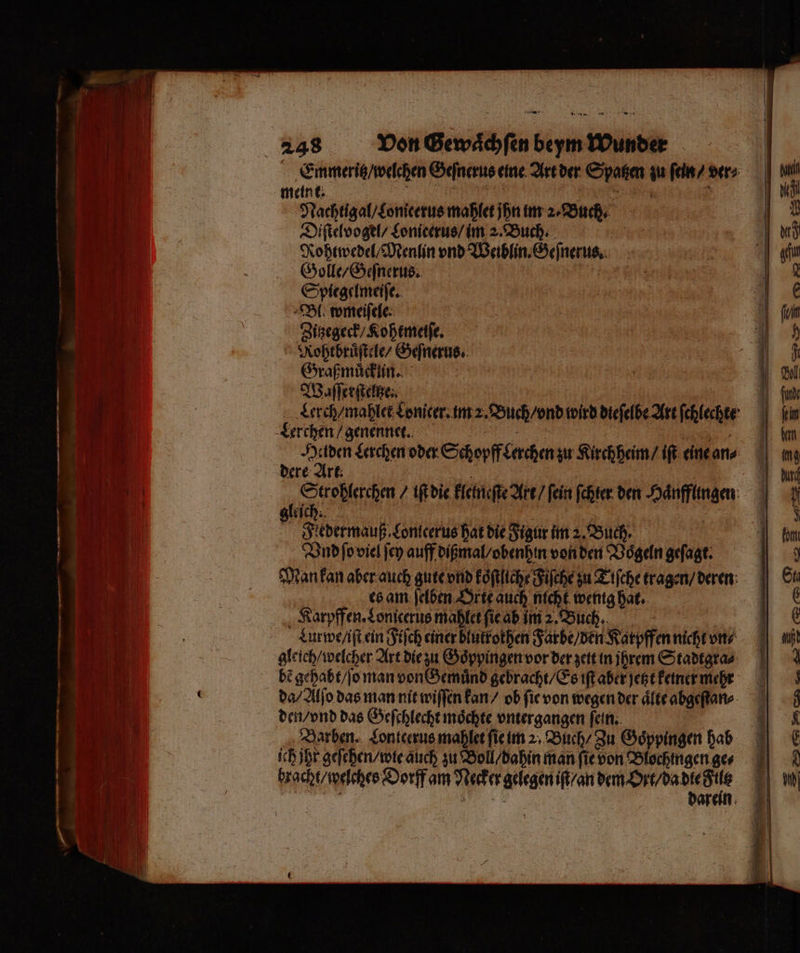 248 Von Gewaͤchſen beym Wunder
Emmeritz/welchen Geſnerus eine Art der Spatzen zu ſein/ ver⸗
meint.
Nachtigal/Lonicerus mahlet jhn im 2. Buch.
Diſtelvogel/ Lonicerus/ im 2. Buch.
Rohtwedel/Menlin vnd Weiblin. Geſnerus.
Golle/Geſnerus.
Spiegelmeiſe.
Bl wmeiſele.
Zitzegeck/Kohtmeiſe.
Rohtbruͤſtele/ Geſnerus.
Graßmuͤcklin.
Waſſerſteltze.
Lerch/mahlet Lonicer. im 2. Buch/vnd wird dieſelbe Art ſchlechte
Lerchen/genennet.
Heiden Lerchen oder Schopff Lerchen zu Kirchheim/ iſt eine an⸗
dere Art.
Strohlerchen / iſt die kleineſte Art / ſein ſchier den Haͤnfflingen
gleich.
Fledermauß. Lonicerus hat die Figur im 2. Buch.
Vnd ſo viel ſey auff dißmal/obenhin von den Voͤgeln geſagt.
Man kan aber auch gute vnd koͤſtliche Fiſche zu Tiſche tragen/ deren
es am ſelben Orte auch nicht wenig hat.
Karpffen. Lonicerus mahlet ſie ab im 2. Buch.
Lurwe/iſt ein Fiſch einer blutrothen Farbe/den Karpffen nicht vn⸗
gleich/welcher Art die zu Goͤppingen vor der zeit in jhrem Stadtgra⸗
bē gehabt/ſo man von Gemuͤnd gebracht/Es iſt aber jetzt keiner mehr
da/Alſo das man nit wiſſen kan/ ob ſie von wegen der aͤlte abgeſtan⸗
den/vnd das Geſchlecht moͤchte vntergangen ſein.
Barben. Lonicerus mahlet ſie im 2. Buch/ Zu Goͤppingen hab
ich jhr geſehen/wie auch zu Boll/dahin man ſie von Blochingen ge⸗
bracht/welches Dorff am Necker gelegen iſt/an dem Ort/da die Filtz
darein